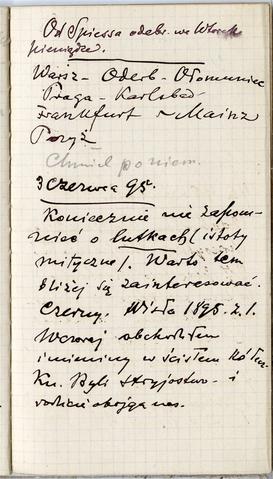 Od Spiessa odebr. we Wtorek
pieniądze.
Warsz - Oderb - Ołomuniec
Praga - Karlsbad
Frankfurt n Mainz
Paryż
Chmiel po niem.
3 Czerwca 95.
Koniecznie nie zapom-
nieć o lutkach (istoty
mityczne). Warto tem
bliżej się zainteresować.
Czerny. Wisła 1895. z. 1.
Wczoraj obchodziłem
imieniny w ścisłem kółku.
Kn. Byli stryjostwo - i
rodzice